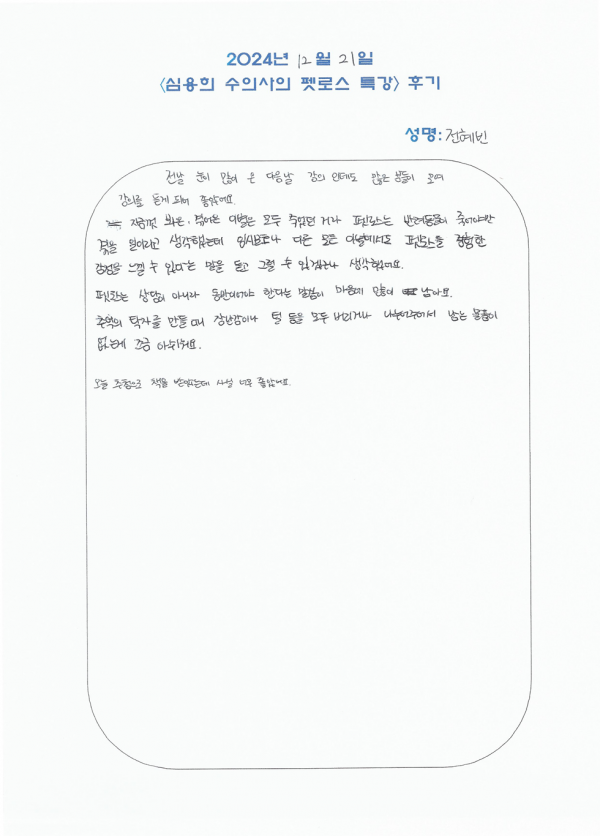 2024년 12월 21일
<심용희 수의사의 펫로스 특강> 후기
성명: 전혜빈
전날 눈이 많이 온 다음날 강의 인데도 많은 분들이 모여
강의를 듣게 되어 좋았어요.
지금껏 봐온, 겪어온 이별은 모두 죽었던 거나 펫로스는 반려동물이 죽어야만
겪을 일이라고 생각했는데 임시보호나 다른 모든 이별에서도 펫로스를 경험한
감정을 느낄 수 있다는 말을 듣고 그럴 수 있겠구나 생각했어요.
상담이 아니라 동반이어야 한다는 말씀이 마음에 많이 남아요.
추억의 탁자를 만들 때 장난감이나 털 등을 모두 버리거나 나눠주어서 남는 물품이
없는게 조금 아쉬워요.
오늘 추첨으로 책을 받았는데 사실 너무 좋았어요.